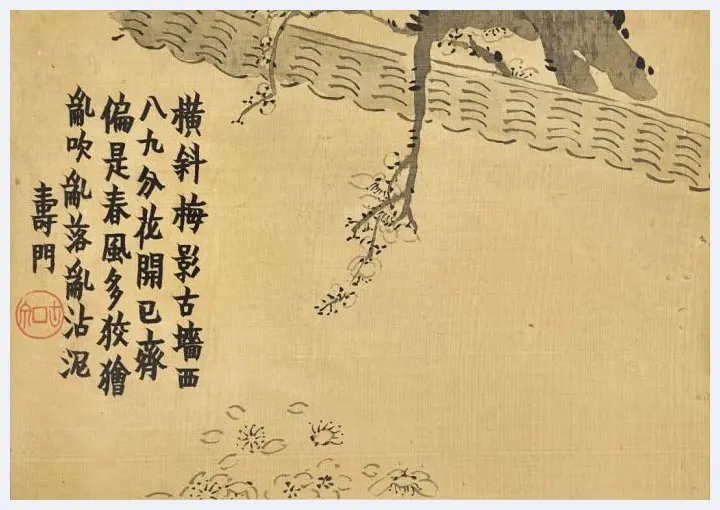 橫斜梅影古墻西
八九分花開已齊
偏是春風多狡獪
亂吹亂落亂沾泥
壽門